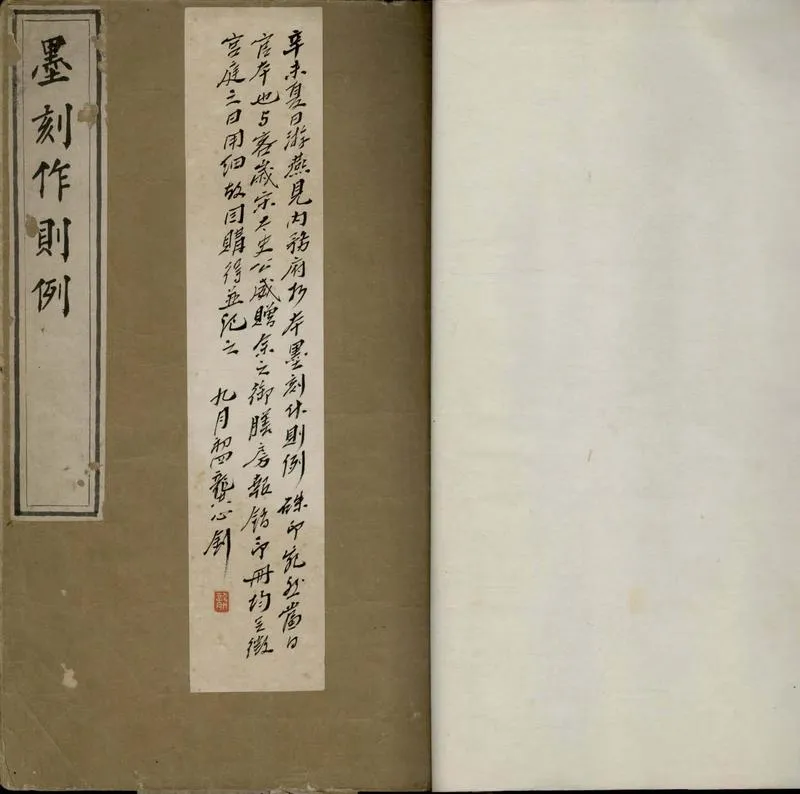 墨刻作則例
辛未夏日游燕見内務府抄本墨刻作則例硃印宛然當日
官本也与客歲宗太史公威贈余之御膳房報銷印冊均足徵
宮庭之日用細故因購得並記之
九月初四龔心釗